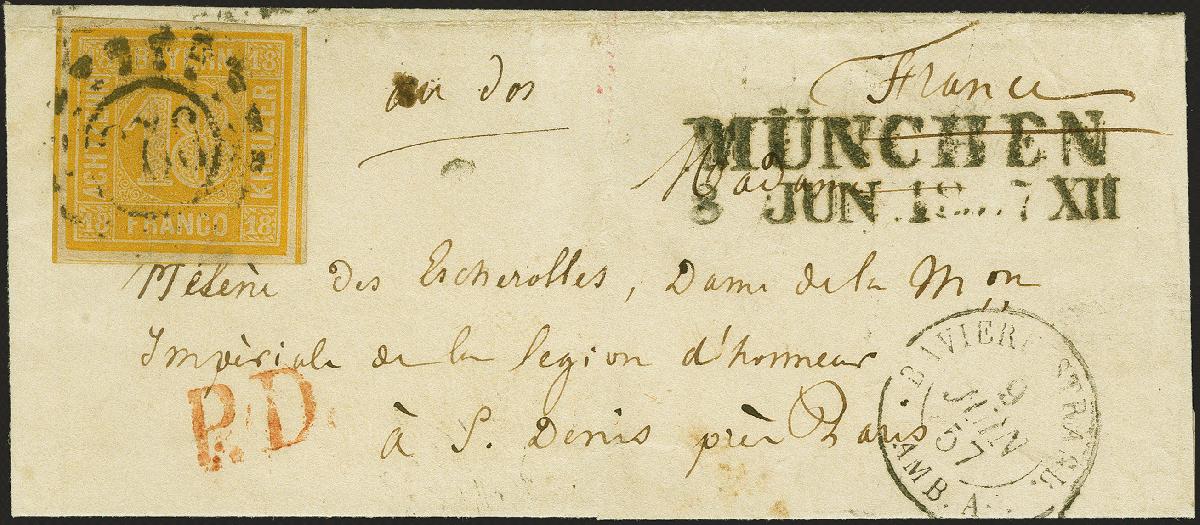 BAYERN
18 18
ACHTZEHN
18
KREUZER
18 FRANCO 18
au dos
France
MÜNCHEN
8 JUN. 18 7 XII
Madame
Hélène des Escherolles, Dame de la Mon
Impèriale de la legion d'honneur
à S. Denis près Paris
P.D.
BAVIERE STRASB.
9
JUIN
57
AMB. A.